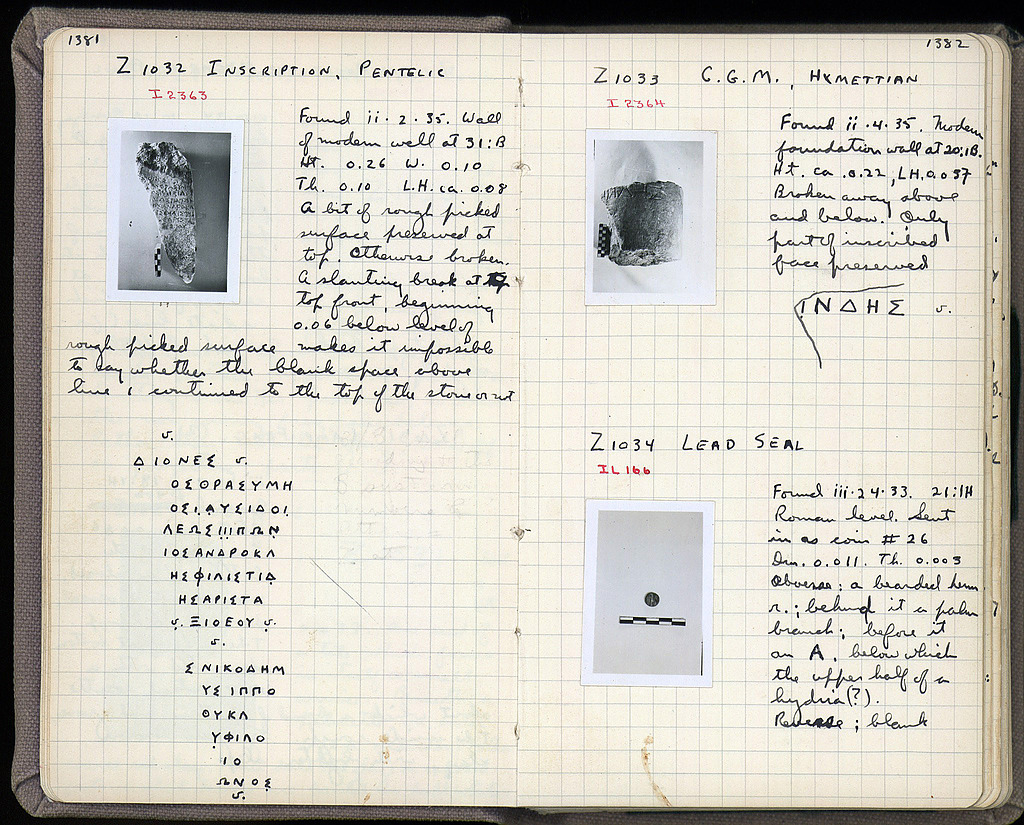 1381
Z 1032 INSCRIPTION, PENTELIC
I 2363
Found ii·2·35. Wall
of modern well at 31:B
Ht. 0.26 W. 0.10
Th. 0.10 L.H. ca. 0.08
A bit of rough picked
surface preserved at
top. Otherwise broken.
A slanting break at
top front, beginning
0.06 below level of
rough picked surface makes it impossible
to say whether the blank space above
line 1 continued to the top of the stone or not
v.
Δ̣ΙΟΝΕΣ v.
ΟΣΘΡΑΣΥΜΗ
ΟΣΙ.ΑΥΣΙΔΟΙ
ΛΕΩΣΙΙΙΠΩΝ
ΙΟΣΑΝΔΡΟΚΛ
ΗΣΦΙΛΙΣΤΙΔ̣
ΗΣΑΡΙΣΤΑ
v. ΞΙΟΕΟΥ v.
v.
ΣΝΙΚΟΔΗΜ
ΥΣΙΠΠΟ
ΘΥΚΛ
Υ̣ΦΙΛΟ
ΙΟ
ΩΝΟΣ̣
v.
1382
Z 1033 C.G.M., HYMETTIAN
I 2364
Found ii·4·35. Modern
foundation wall at 20:1B.
Ht. ca .0.22, LH.0.037
Broken away above
and below. Only
part of inscribed
face preserved
Ι̣ΝΔΗΣ v.
Z 1034 LEAD SEAL
IL 166
Found iii·24·33. 21:1H
Roman level. Sent
in as coin # 26
Dm. 0.011. Th. 0.003
Obverse: a bearded herm
r.; behind it a palm
branch; before it
an A, below which
the upper half of a
hydria(?).
Reverse; blank